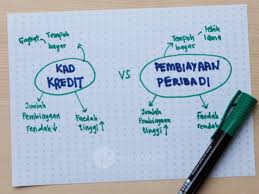 Singkat
Tempoh
bayar
KAD
KREDIT
Jumlah
Pembiayaan
Rendah ↓
Faedah
tinggi ↑
VS
Tempoh
bayar
lebih
lama
PEMBIAYAAN
PERIBADI
Jumlah
Pembiayaan
tinggi ↑
Faedah
rendah